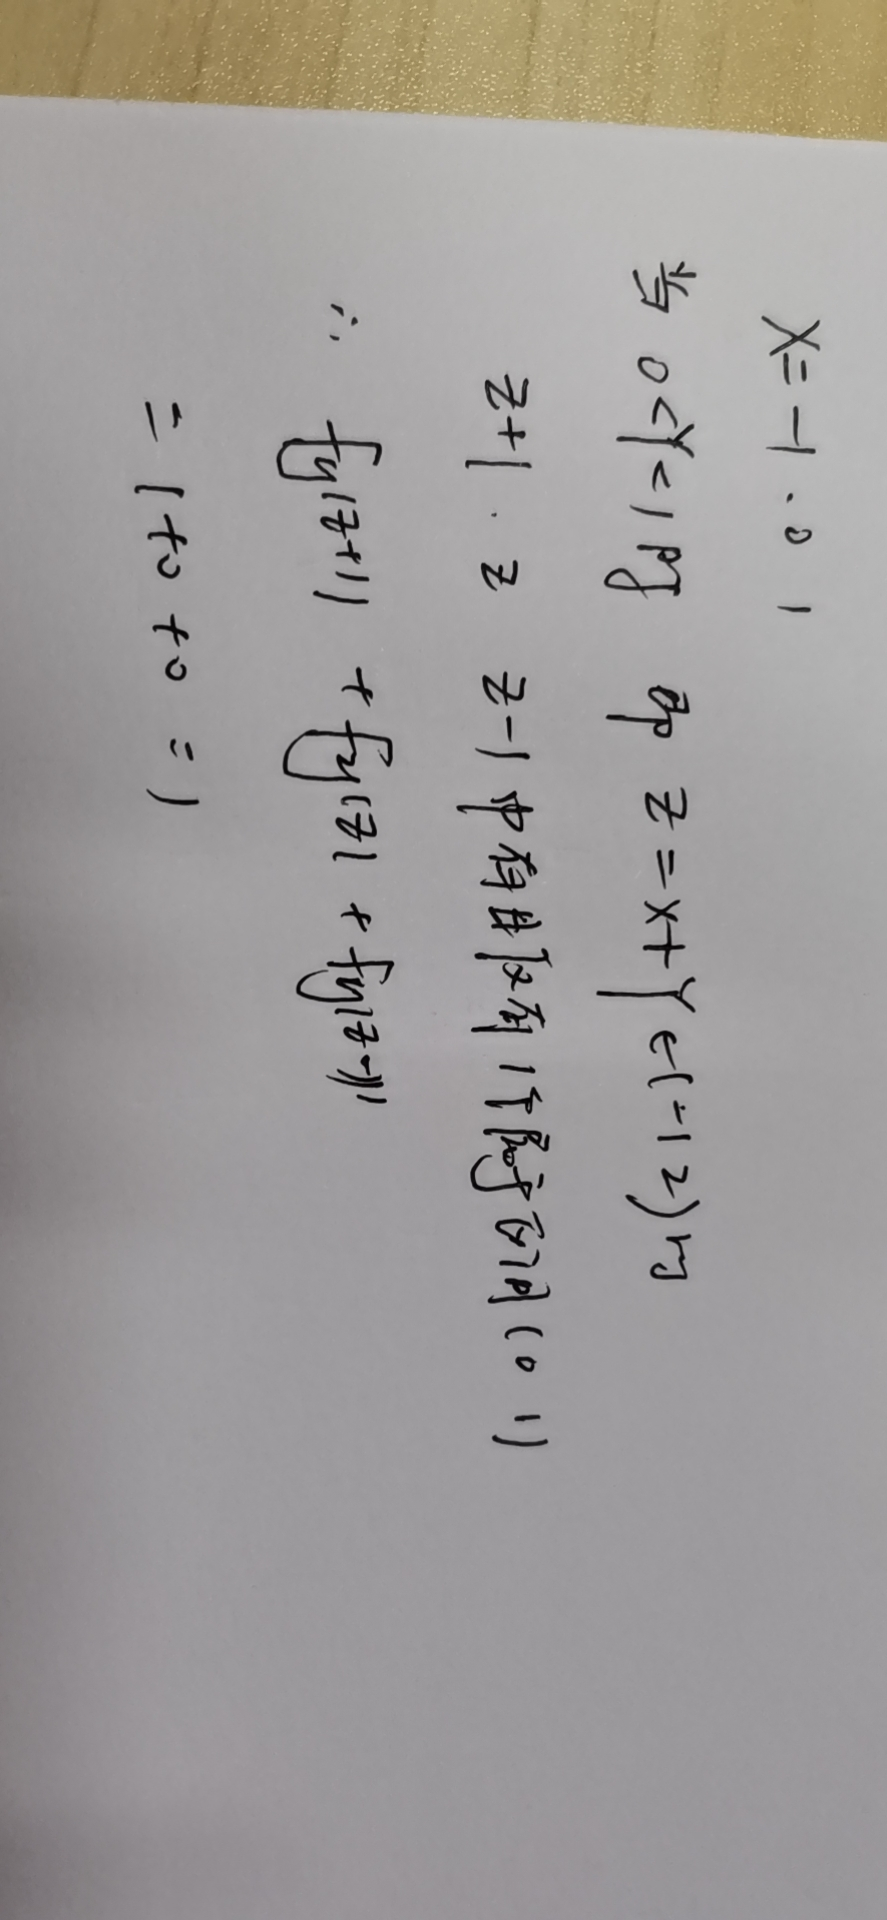 X = -1 . 0 1
当 0<Y<1时 即 Z=X+Y∈(-1 2)时
Z+1 . Z Z-1 中有且仅有1个属于区间(0 1)
∴ fy(Z+1) + fy(Z) + fy(Z-1)
= 1+0+0 = 1